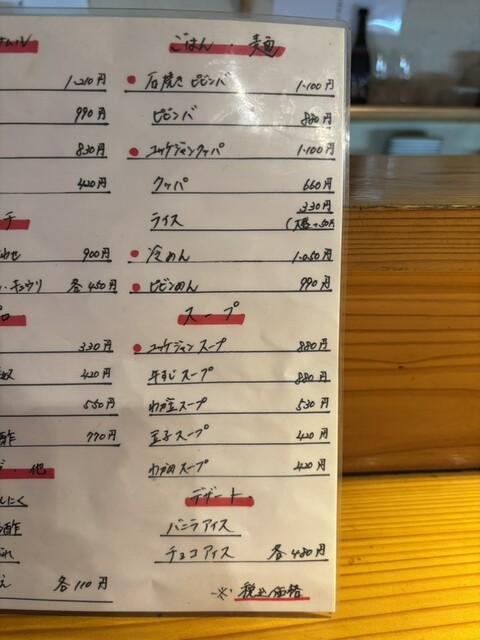 1.210円
990円
830円
420円
チ
900円
キュウリ 各450円
330円
420円
550円
酢 770円
他
んにく
酢
各110円
ごはん・麺
石焼きピビンバ 1.100円
ピビンバ 880円
ユッケジャンクッパ 1.100円
クッパ 660円
ライス 330円
冷めん 1.050円
ピビンめん 990円
スープ
ユッケジャンスープ 880円
牛すじスープ 880円
わか玉スープ 530円
玉子スープ 420円
わかめスープ 420円
デザート
バニラアイス
チョコアイス 各480円
※税込価格